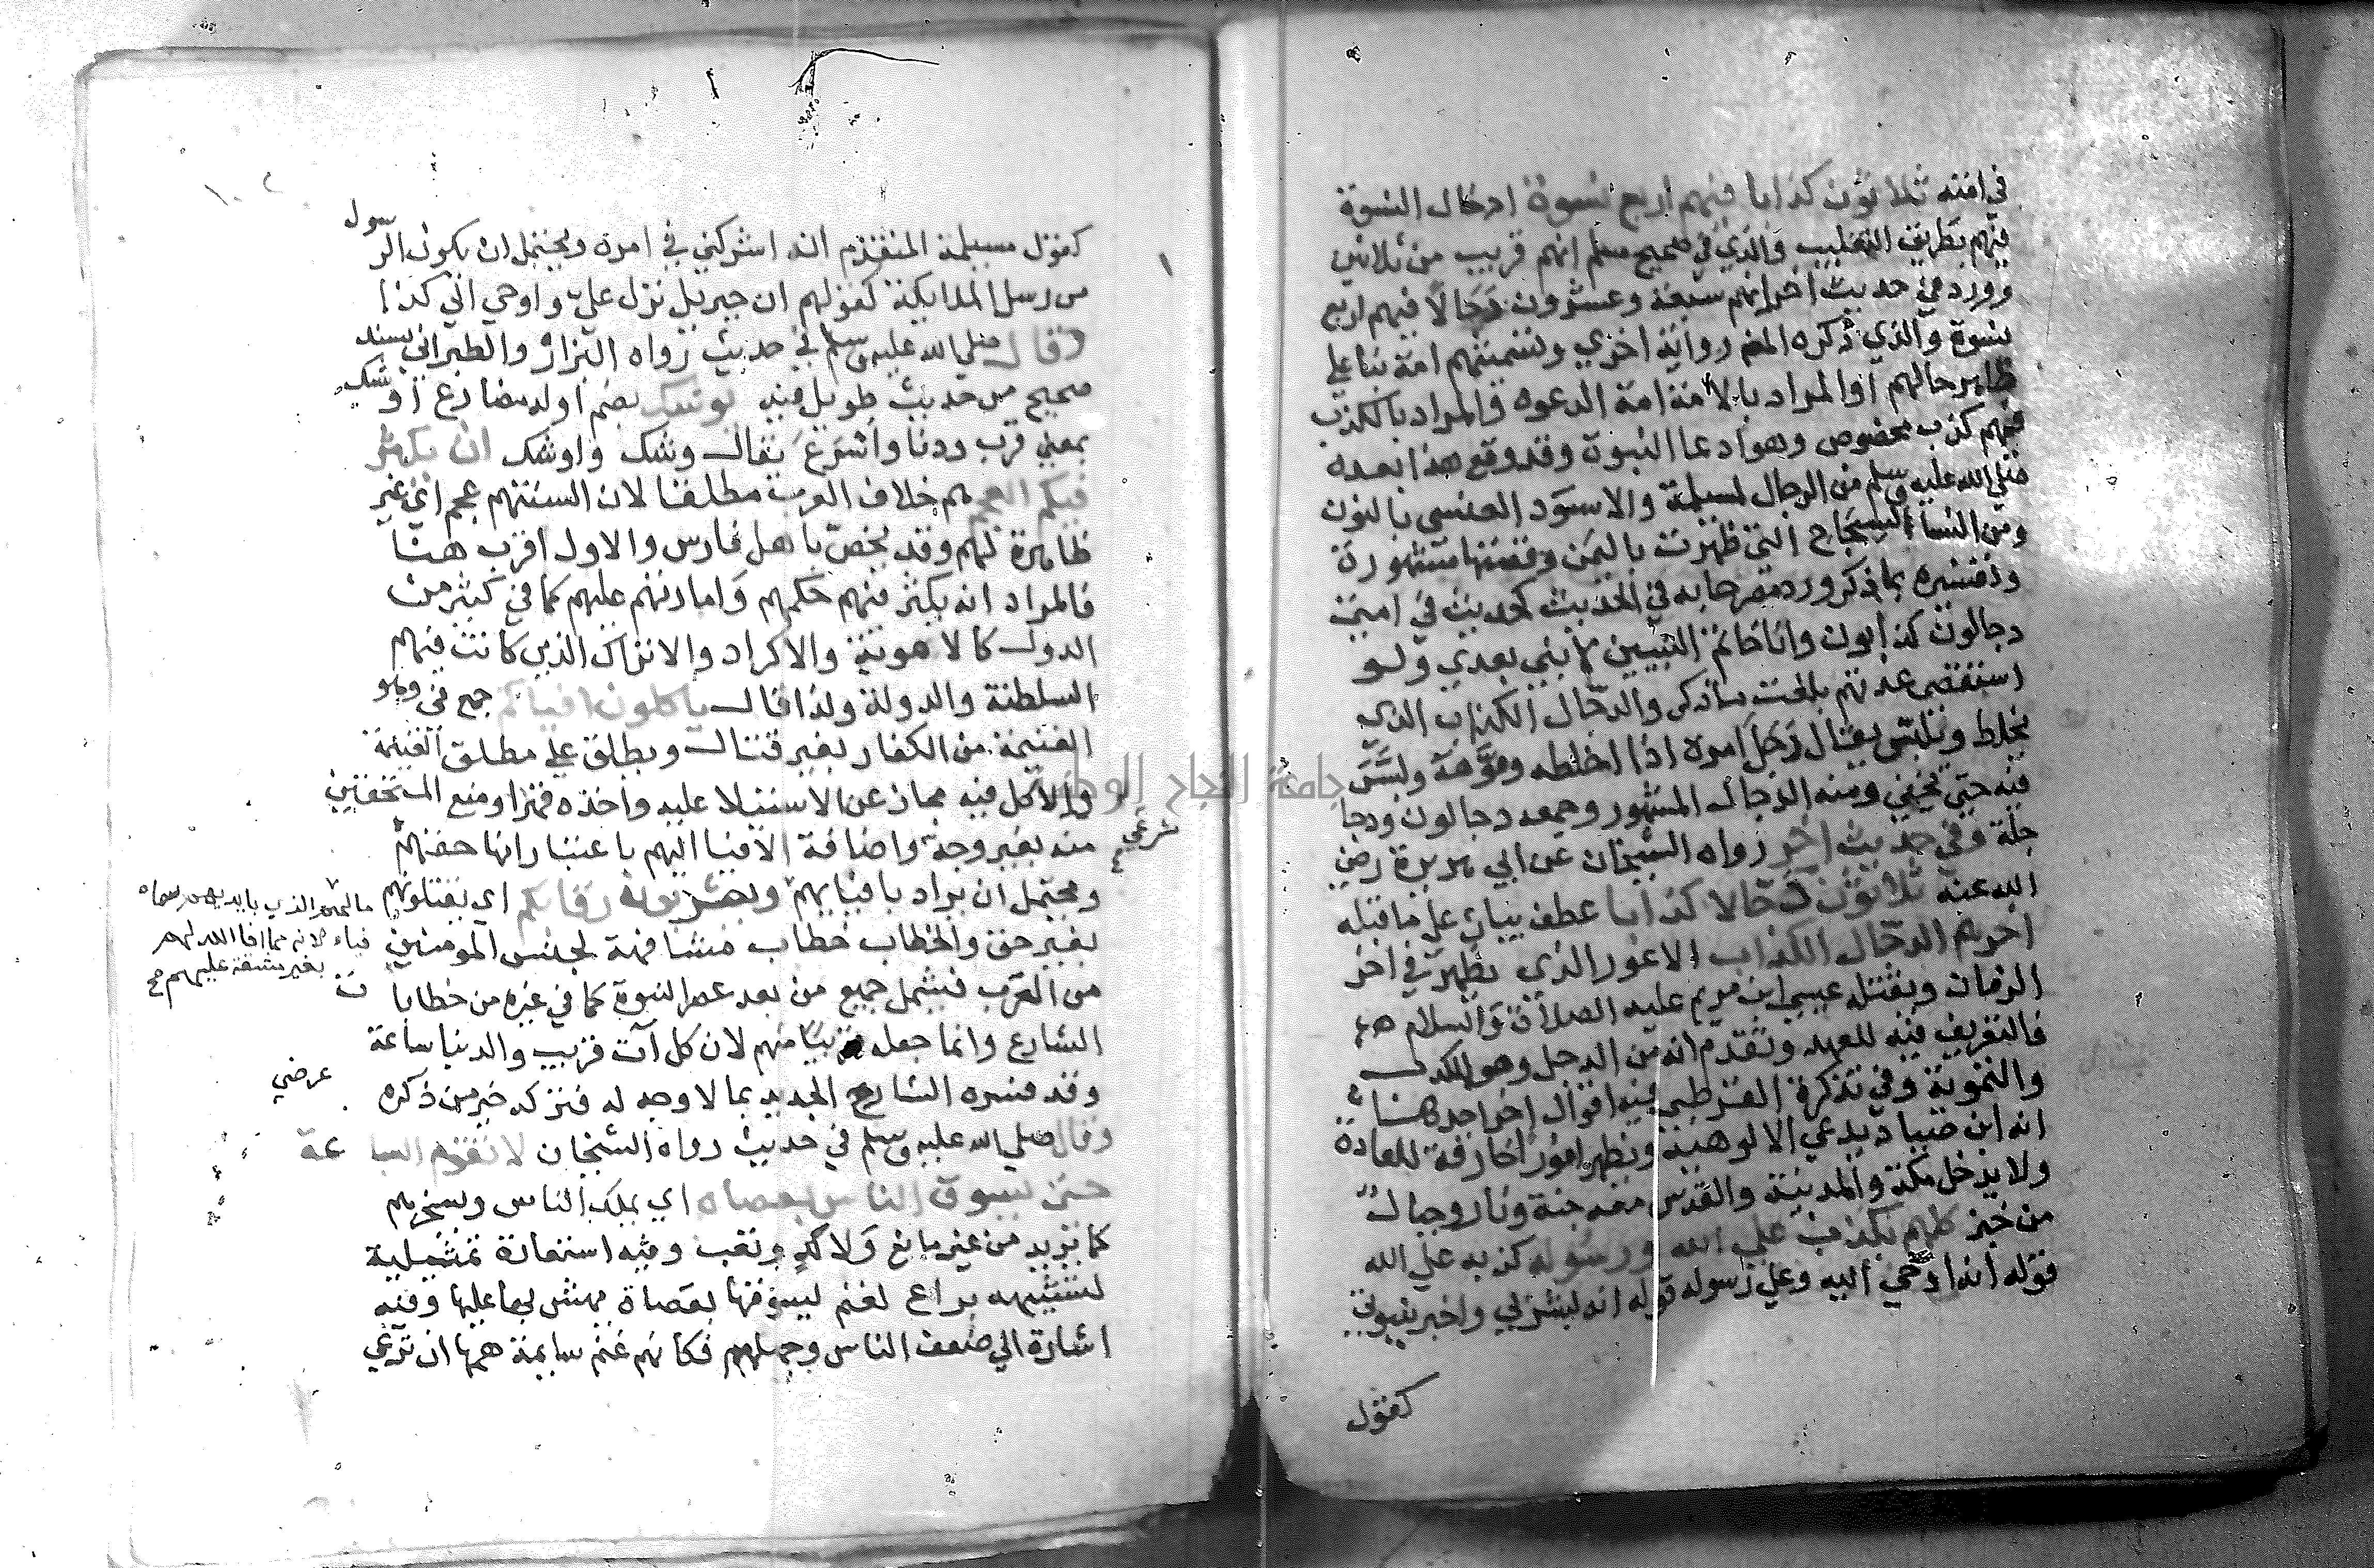 في امته ثلاثون كذابا فيهم اربع نسوة ادخال النسوة
فيهم بطريق التغليب والذي في صحيح مسلم انهم قريب من ثلاثين
وورد في حديث اخر انهم سبعة وعشرون دجالا فيهم اربع
نسوة والذي ذكره المص رواية اخري وتسميتهم امة بناعلي
ظاهر حالهم او المراد بالامة امة الدعوه والمراد بالكذب
فيهم كذب مخصوص وهو ادعا النبوة وقد وقع هذا بعده
صلي الله عليه وسلم من الرجال لمسيلمة والاسود العنسي بالنون
ومن النسا سجاح التي ظهرت باليمن وقصتها مشهورة
وتفسيره بما ذكر ورد مصرحا به في الحديث كحديث في امتي
دجالون كذابون وانا خاتم النبيين لا نبي بعدي ولو
استقصي عدتهم بلغت ما ذكر والدجال الكذاب الذي
يخلط ويلبس يقال دجل امره اذا اخلطه وموهه ولبس
فيه حتي يخفي ومنه الدجال المشهور وجمعه دجالون ودجا
جلة وفي حديث اخر رواه الشيخان عن ابي هريرة رضي
الله عنه ثلاثون دجالا كذابا عطف بيان علي ما قبله
اخرهم الدجال الكذاب الاعور الذي يظهر في اخر
الزمان ويقتله عيسي ابن مريم عليه الصلاة والسلام
فالتعريف فيه للعهد وتقدم انه من الدجل وهو الكذب
والتمويه وفي تذكرة القرطبي فيه اقوال اخر احدها
انه ابن صياد يدعي الالوهية ويظهر امورا خارقة للعادة
ولا يدخل مكة والمدينة والقدس معه جنة ونار وجبال
من خبز كلهم يكذب علي الله ورسوله كذبه علي الله
قوله انه اوحي اليه وعلي رسوله قوله انه بشر بي واخبر بنبوتي
كقول
كقول مسيلمة المتقدم انه اشركني في امره ويحتمل ان يكون الرسول
من رسل الملايكة كقولهم ان جبريل نزل علي واوحي الي كذا
وقال صلي الله عليه وسلم في حديث رواه البزار والطبراني بسند
صحيح من حديث طويل فيه يوشك بضم اوله مضارع اوشك
بمعني قرب ودنا واسرع يقال وشك واوشك ان يكثر
فيكم العجم هم خلاف العرب مطلقا لان السنتهم عجم اي غير
ظاهرة لهم وقد يخص باهل فارس والاول اقرب هنا
فالمراد انه يكثر فيهم حكمهم وامارتهم عليهم كما في كثير من
الدول كالاهوتية والاكراد والاتراك الذين كانت فيهم
السلطنة والدولة ولذا قال ياكلون افياكم جمع في وهو
الغنيمة من الكفار بغير قتال ويطلق علي مطلق الغنيمة
والاكل فيه مجاز عن الاستيلا عليه واخذه قهرا ومنع المستحقين
منه بغير وجه شرعي واضافة الافيا اليهم باعتبار انها حقهم
ويحتمل ان يراد بافيايهم ويضربون رقابكم اي يقتلونهم
مالهم الذي بايديهم سماه
فياء لانه مما افا الله لهم
بغير مشقة عليهم صح
بغير حق والخطاب خطاب مشافهة لجنس المومنين
من العرب فيشمل جميع من بعد عصر النبوة كما في غيره من خطابات
الشارع وانما جعله قريبا منهم لان كل آت قريب والدنيا ساعة
وقد فسره الشارح الجديد بما لا وجه له فتركه خير من ذكره
عرضي
وقال صلي الله عليه وسلم في حديث رواه الشيخان لا تقوم الساعة
حتي يسوق الناس بعصاه اي يملك الناس ويسخرهم
كما يريد من غير مانع ولا كد وتعب وفيه استعارة تمثيلية
لتشبيهه براع لغنم ليسوقها بعصاة يهش بها عليها وفيه
اشارة الي ضعف الناس وجهلهم فكانهم غنم سايمة همها ان ترعي
جامعة النجاح الوطنية